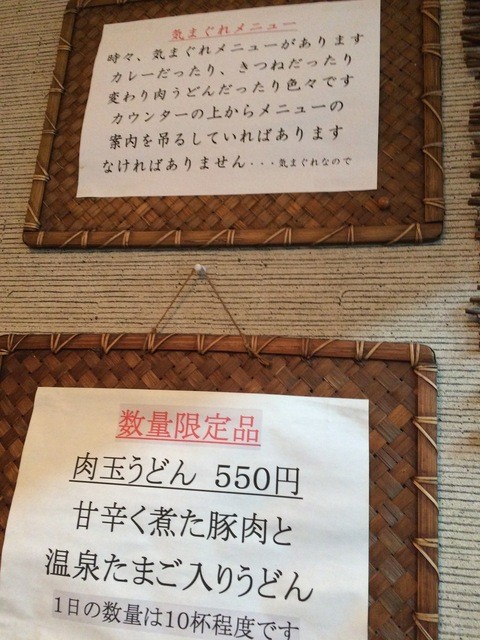 気まぐれメニュー
時々、気まぐれメニューがあります
カレーだったり、きつねだったり
変わり肉うどんだったり色々です
カウンターの上からメニューの
案内を吊るしていればあります
なければありません・・・気まぐれなので
数量限定品
肉玉うどん 550円
甘辛く煮た豚肉と
温泉たまご入りうどん
1日の数量は10杯程度です